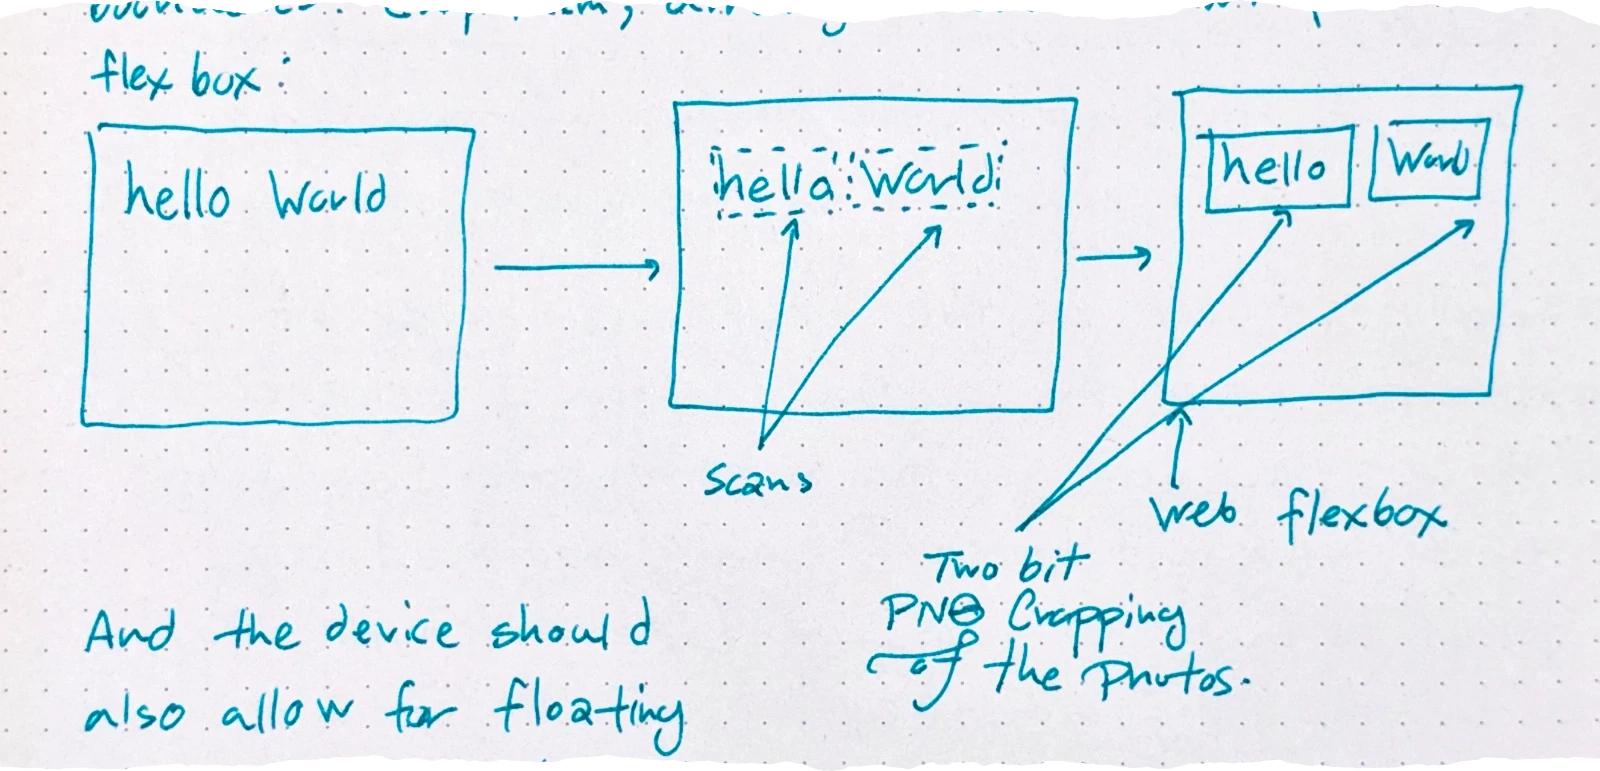 flex box:
hello World
hello World
hello World
Scans
web flexbox
Two bit
PNG Cropping
of the photos.
And the device should
also allow for floating